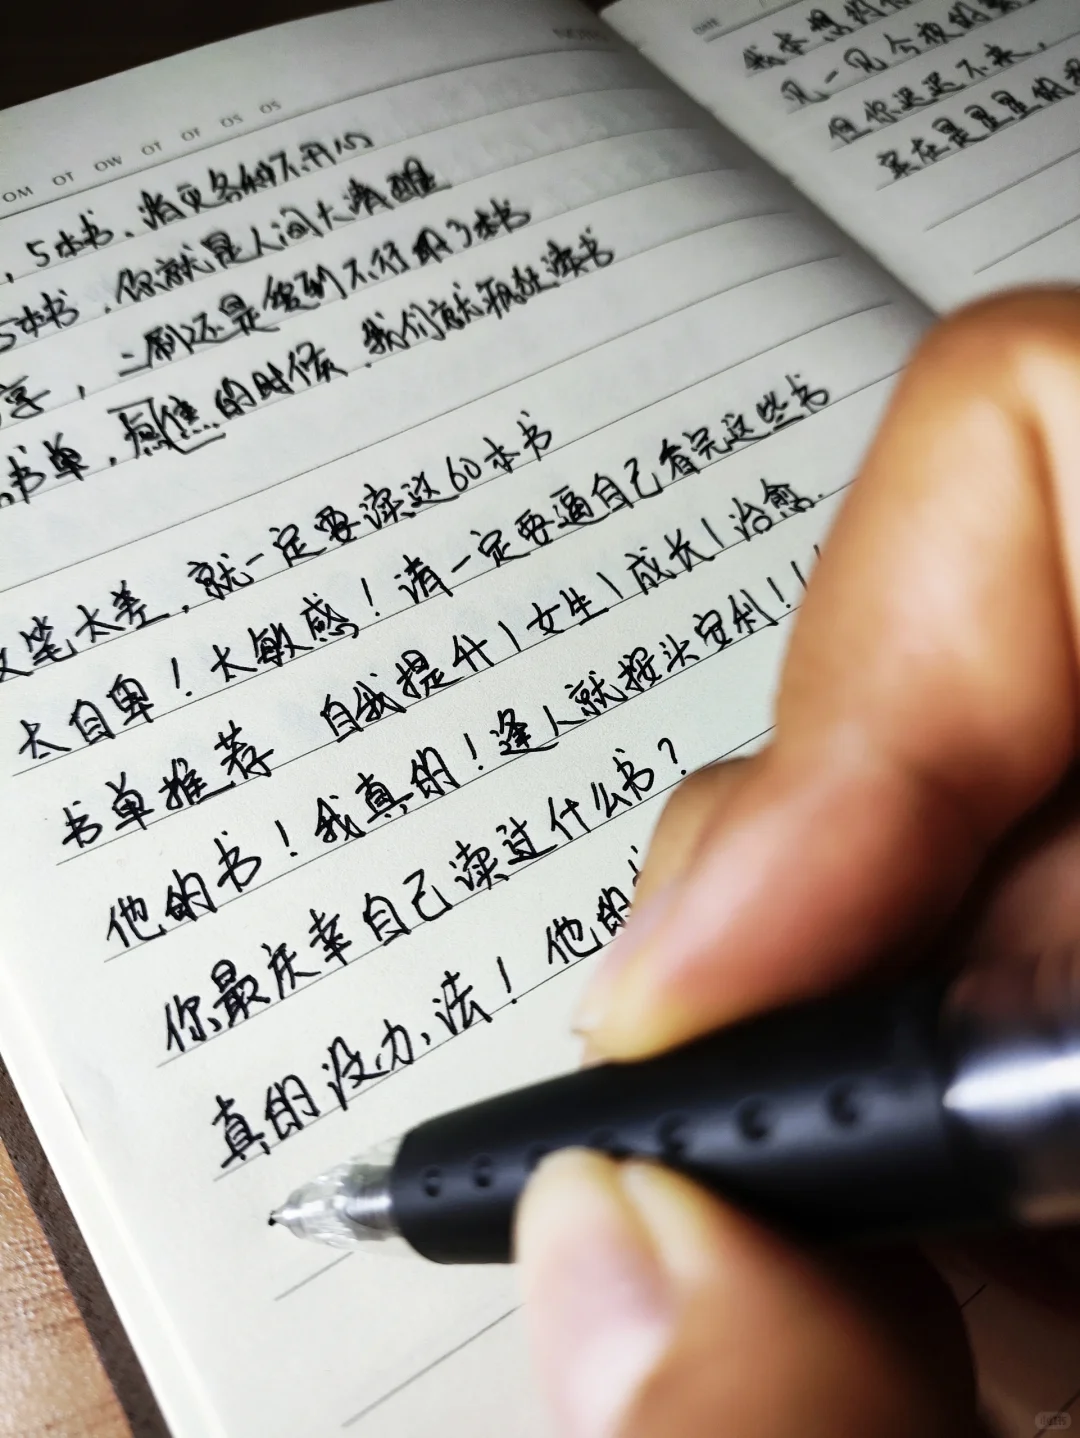 NOTE
OM OT OW OT OF OS OS
，5本书，消灭各种不开心
5本书，你就是人间大清醒
享，二刷还是震到不行的3本书
书单，焦的时候，我们就疯狂读书
文笔太差，就一定要读这60本书
太自卑！太敏感！请一定要逼自己看完这些书
书单推荐 自我提升|女生|成长|治愈
他的书！我真的！逢人就按头安利！！
你最庆幸自己读过什么书？
真的没办法！他的
我本想
见一见今夜的
但你迟迟不来，
实在是星星的